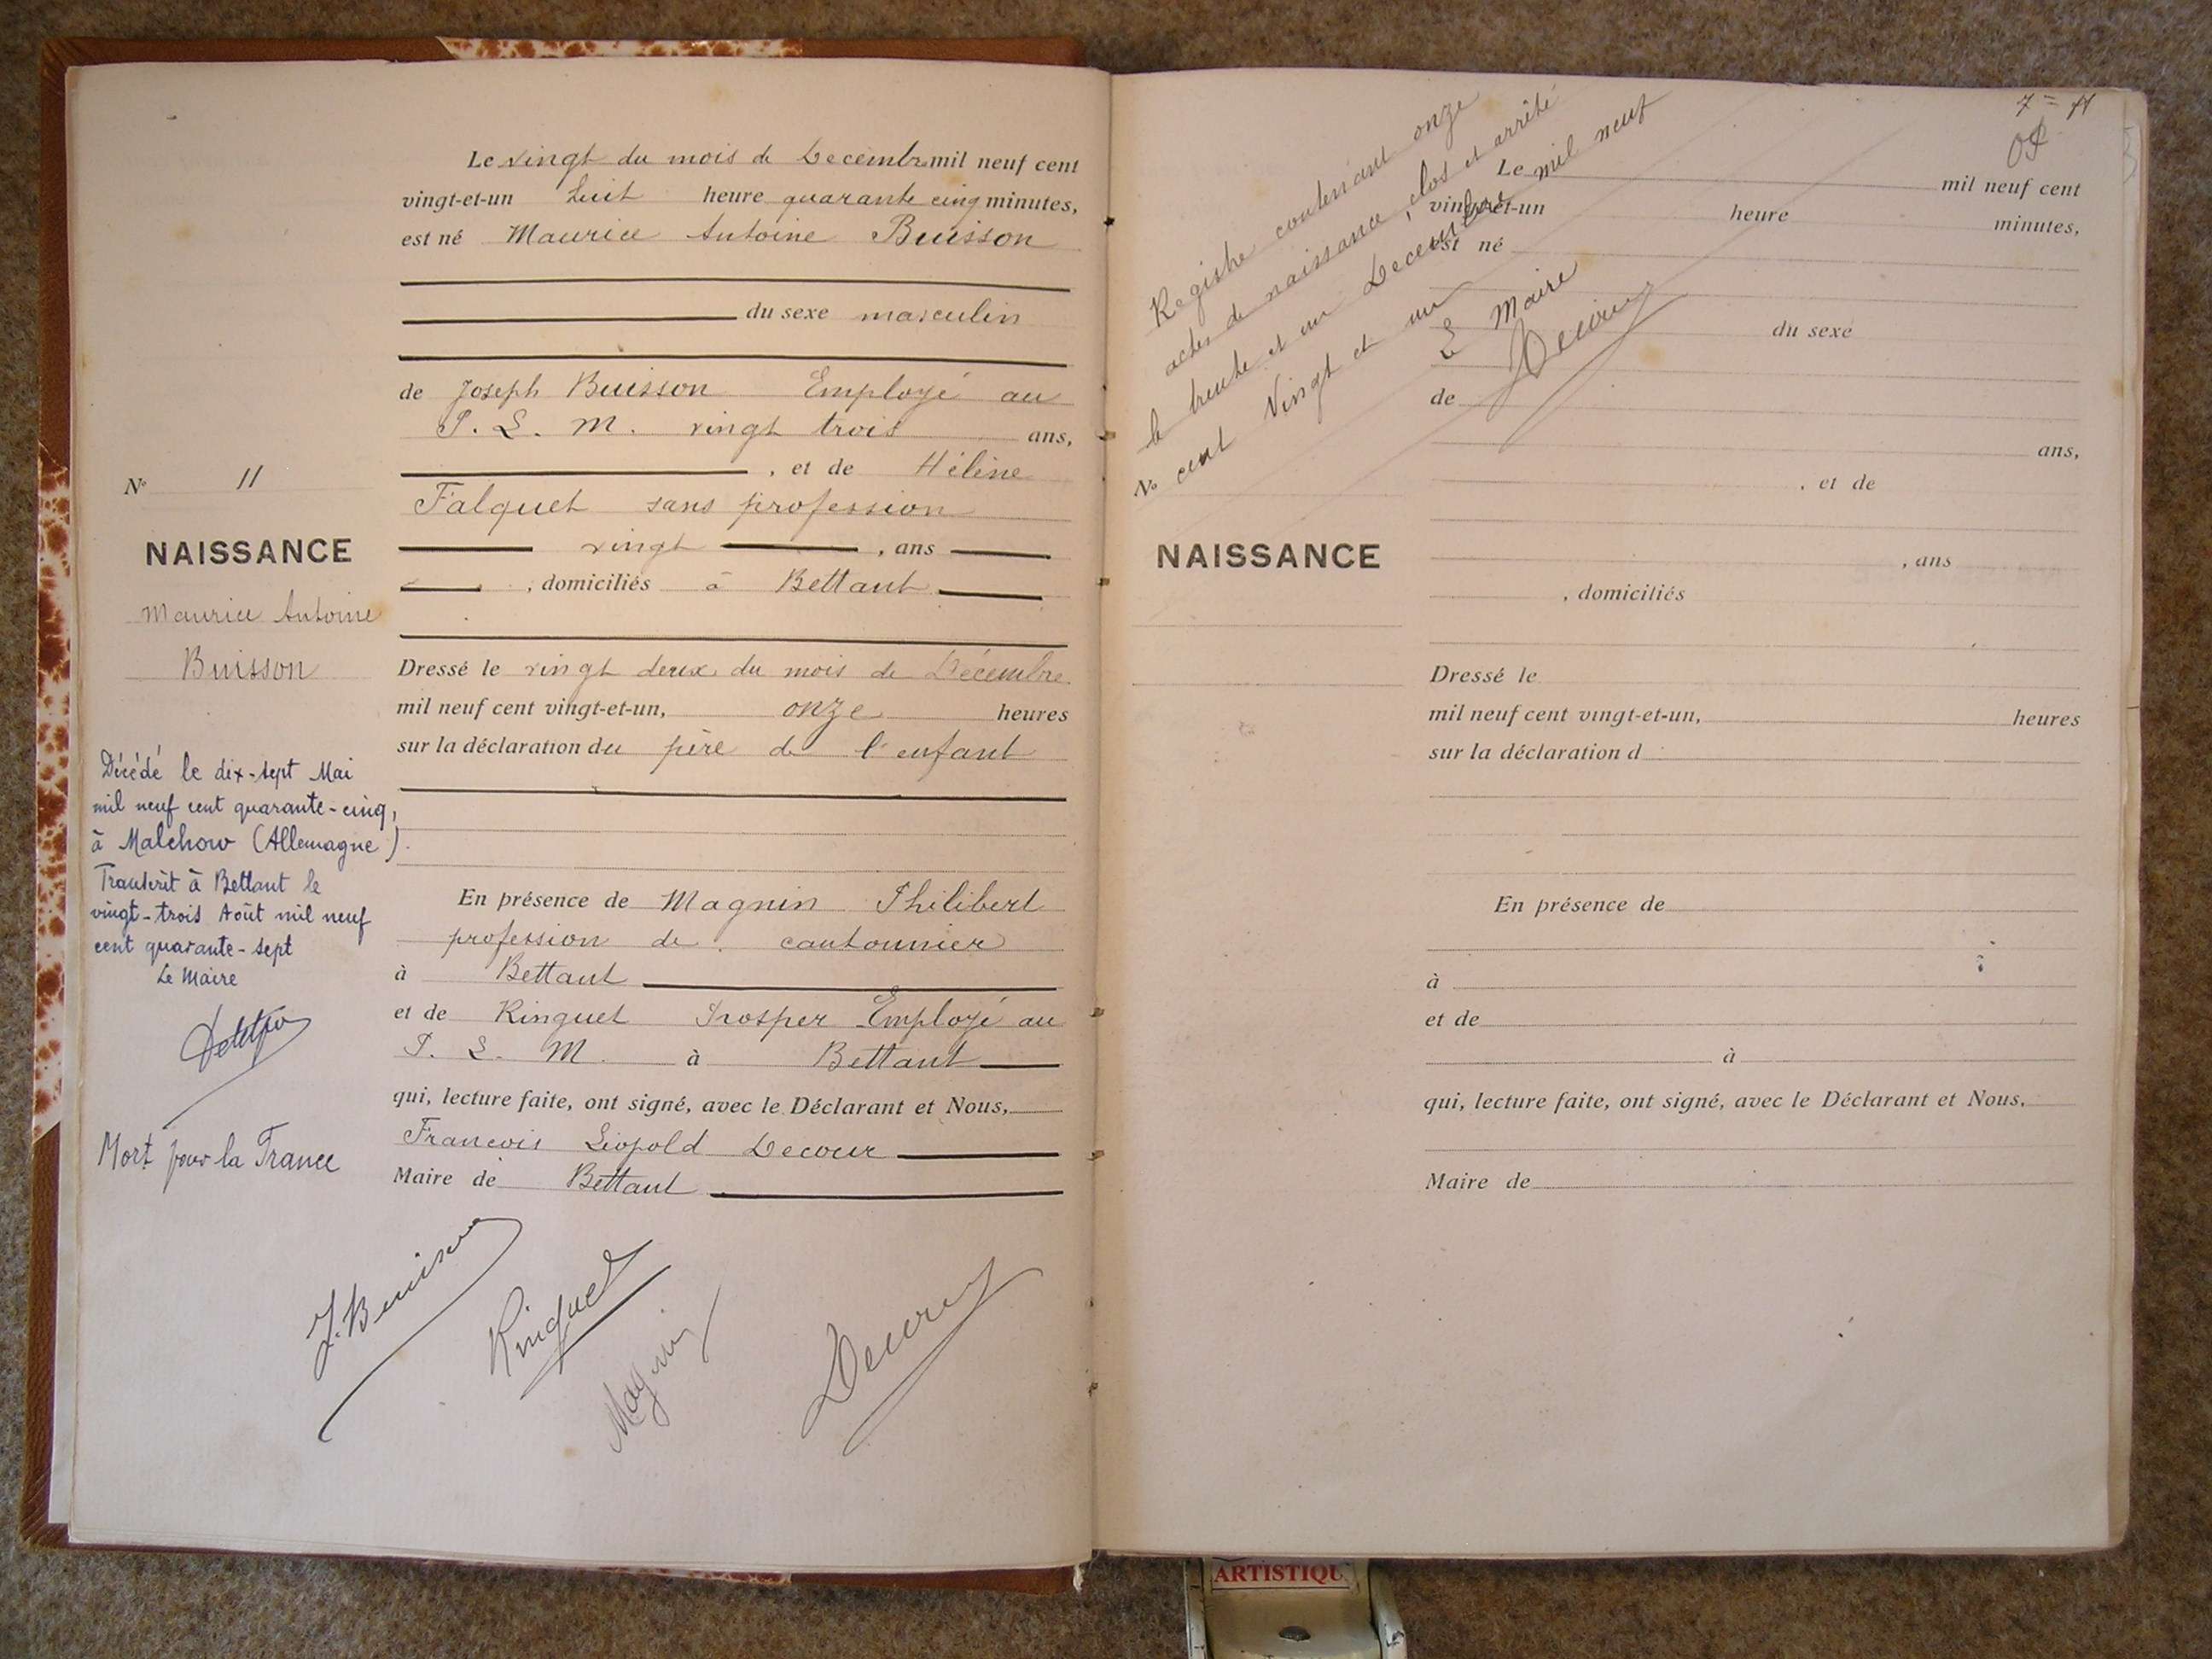 Le vingt du mois de Decembre mil neuf cent
vingt-et-un huit heure quarante cinq minutes,
est né Maurice Antoine Buisson
du sexe masculin
de Joseph Buisson Employé au
P. L. M. vingt trois ans,
, et de Hélène
Falquet sans profession
vingt , ans
, domiciliés à Bettant
Dressé le vingt deux du mois de Décembre
mil neuf cent vingt-et-un, onze heures
sur la déclaration du père de l'enfant
En présence de Magnin Philibert
profession de cantonnier
à Bettant
et de Rinquet Prosper Employé au
P. L. M. à Bettant
qui, lecture faite, ont signé, avec le Déclarant et Nous,
Francois Léopold Decour
Maire de Bettant
J. Buisson
Rinquet
Magnin
Decour
N° 11
NAISSANCE
Maurice Antoine
Buisson
Décédé le dix-sept Mai
mil neuf cent quarante-cinq,
à Malchow (Allemagne).
Transcrit à Bettant le
vingt-trois Août mil neuf
cent quarante-sept
Le Maire
Mort pour la France
7
Registre contenant onze
actes de naissance, clos et arrêté
le trente et un Decembre mil neuf
cent Vingt et un
Le Maire
Decour
N°
NAISSANCE
Le mil neuf cent
vingt-et-un heure minutes,
est né
du sexe
de
ans,
, et de
, ans
, domiciliés
Dressé le
mil neuf cent vingt-et-un, heures
sur la déclaration d
En présence de
à
et de
à
qui, lecture faite, ont signé, avec le Déclarant et Nous,
Maire de
ARTISTIQU